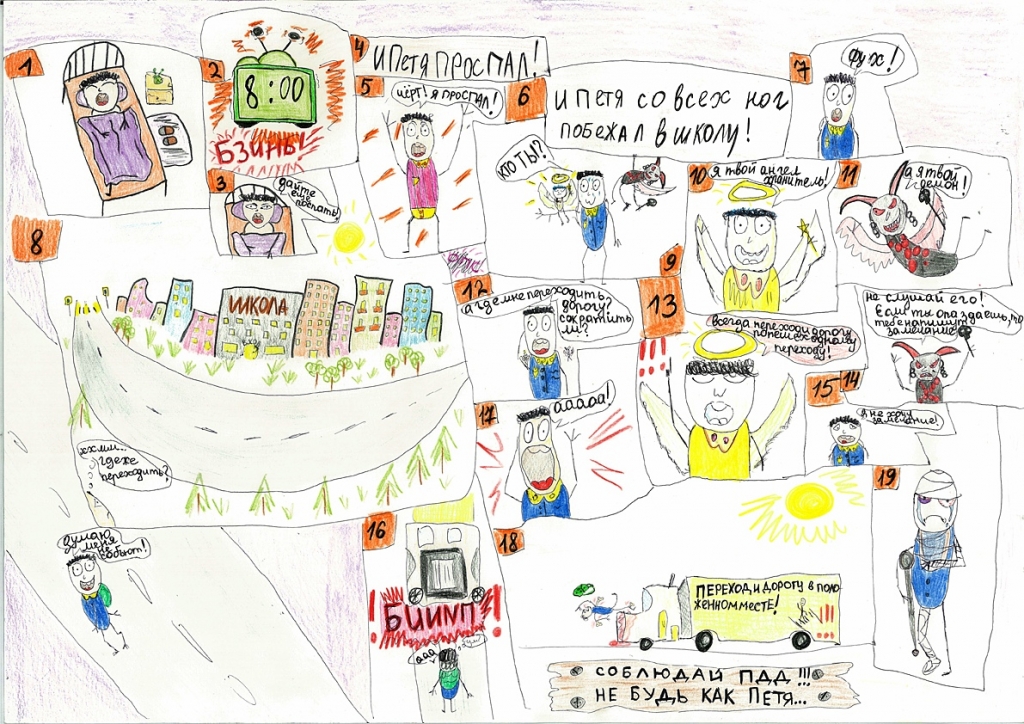 1
2
8:00
БЗИНЬ!
3
дайте
ещё
поспать!
4
И ПЕТЯ ПРОСПАЛ!
5
ЧЁРТ! Я ПРОСПАЛ!
6
И ПЕТЯ СО ВСЕХ НОГ
ПОБЕЖАЛ В ШКОЛУ!
7
ФУХ!
8
ШКОЛА
ххмм...
где же
переходить?
9
КТО ТЫ!?
10
Я твой ангел
хранитель!
11
а я твой
демон!
12
а где мне переходить
дорогу?
сократить
ли?
13
всегда переходи дорогу
по пешеходному
переходу!
14
не слушай его!
Если ты опаздаешь, то
тебе напишут
замечание!
15
я не хочу
замечание!
думаю
меня
не
собьют!
16
БИИМП!
ааа
17
ааааа!
18
ПЕРЕХОДИ ДОРОГУ В ПОЛО
ЖЕННОМ МЕСТЕ!
19
СОБЛЮДАЙ ПДД!!!
НЕ БУДЬ КАК ПЕТЯ...